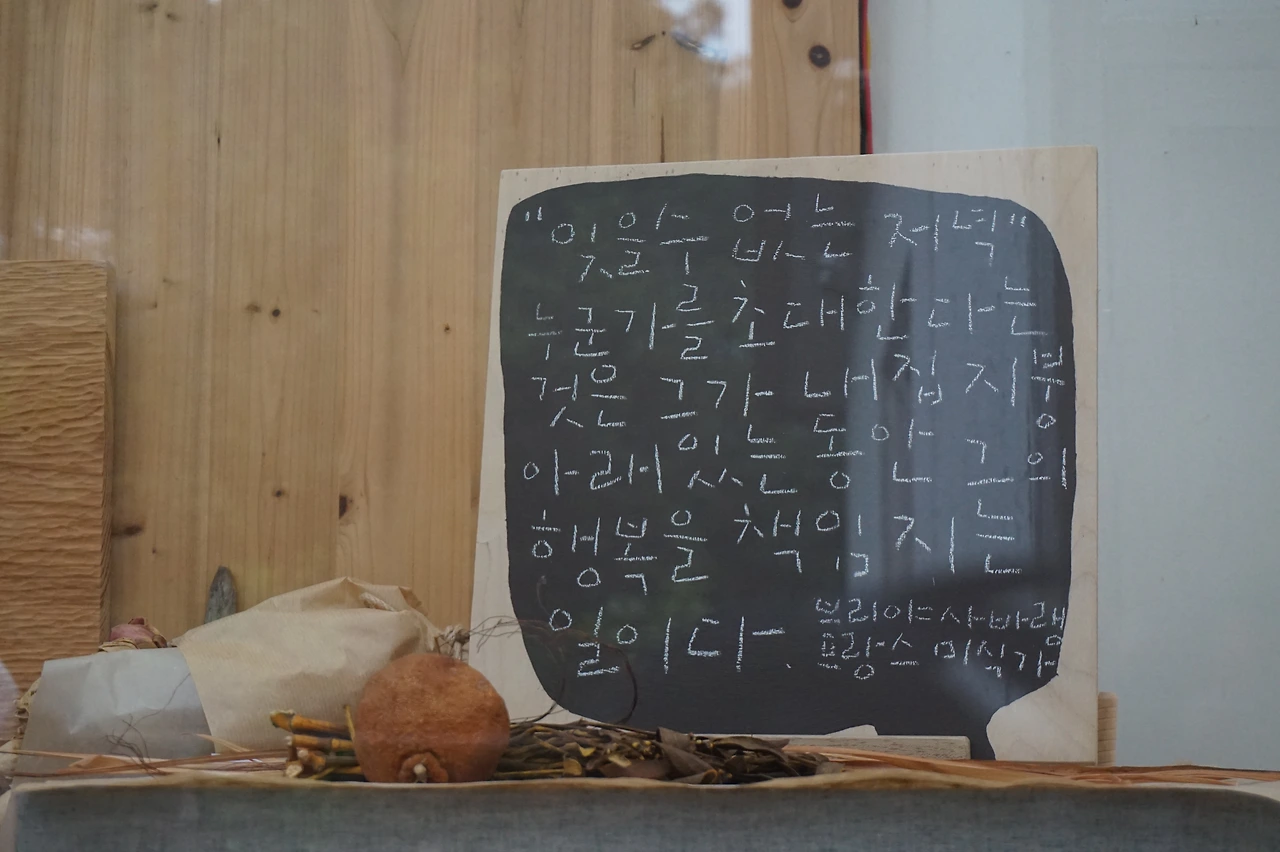 "잊을수 없는 저녁"
누군가를 초대한다는
것은 그가 내집 지붕
아래 있는 동안 그의
행복을 책임지는
일이다.
브리야 사바랭
프랑스 미식가